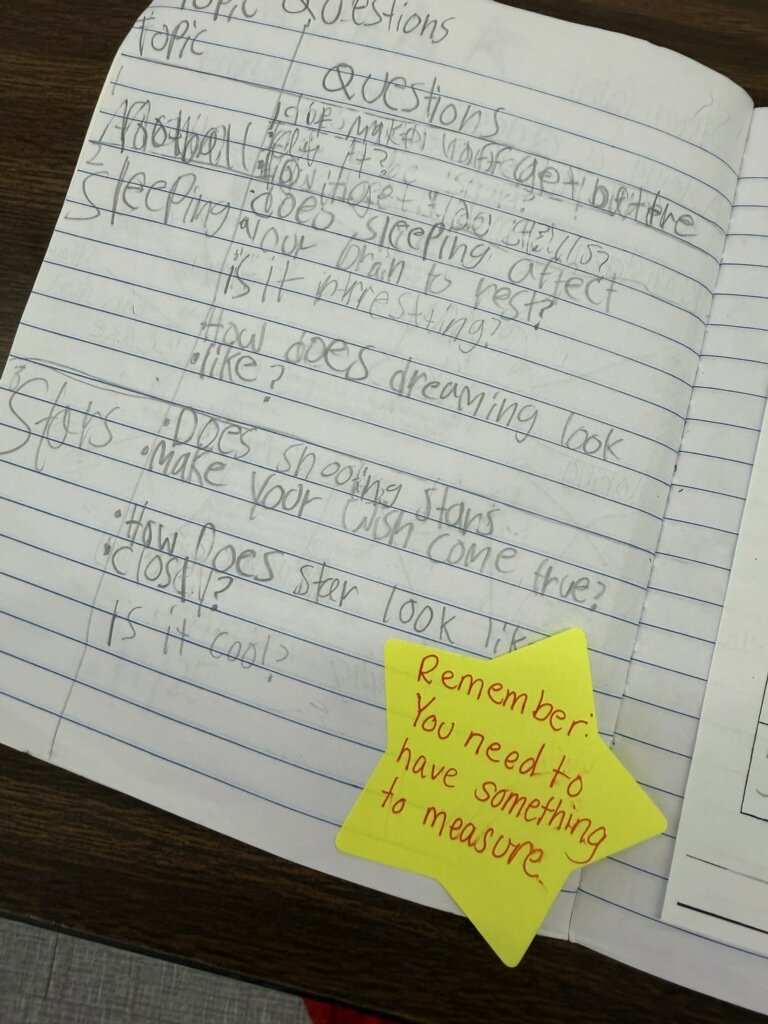 Topic Questions
Topic
Questions
1
Football
get
it?
2
Sleeping
Does sleeping affect
your brain to rest?
Is it
How does dreaming look
like?
3
Stars
Does shooting stars
Make your wish come true?
How Does star look lik
closly?
Is it cool?
Remember:
You need to
have something
to measure.